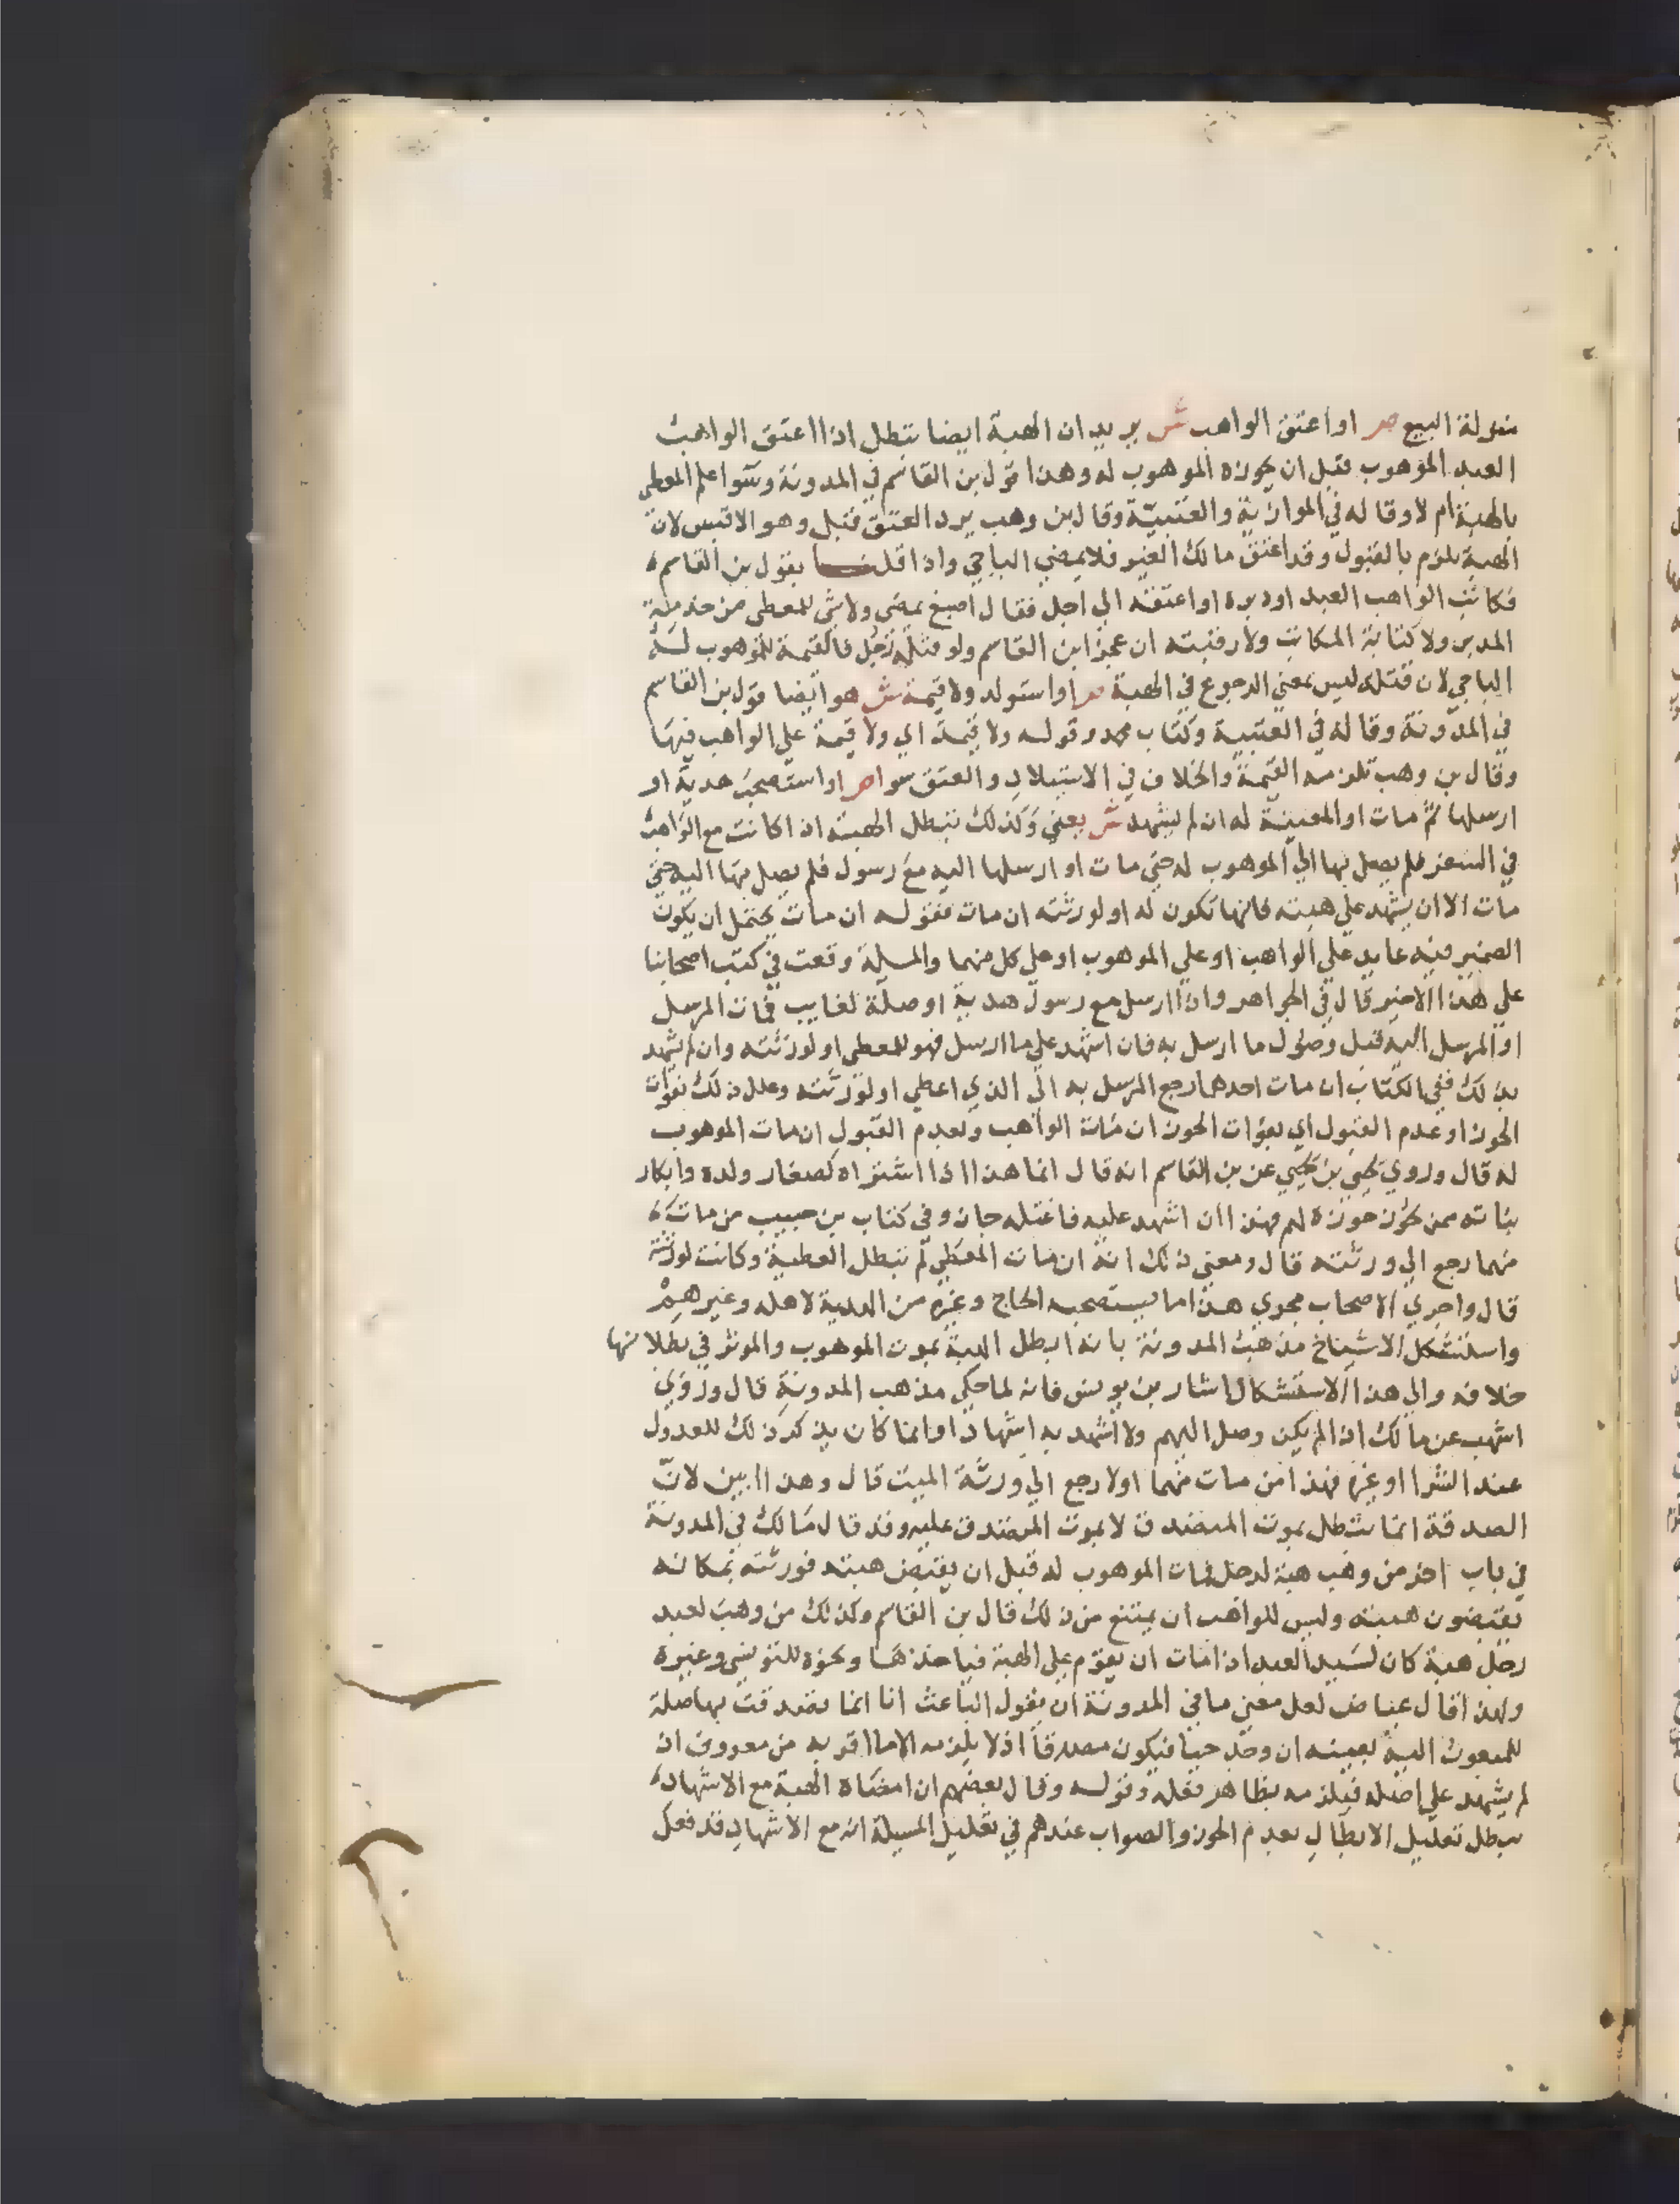 منزلة البيع ص او اعتق الواهب ش يريد ان الهبة ايضا تبطل اذا اعتق الواهب
العبد الموهوب قبل ان يحوزه الموهوب له وهذا قول بن القاسم في المدونة وسوا علم المعطى
بالهبة ام لا وقاله في الموازية والعتبية وقال بن وهب يرد العتق قبل وهو الاقيس لان
الهبة تلزم بالقبول وقد اعتق مالك الغير فلا يمضي الباجي واذا قلنا بقول بن القاسم
فكاتب الواهب العبد او دبره او اعتقه الى اجل فقال اصبغ يمضى ولا شي للمعطى من خدمة
المدبر ولا كتابة المكاتب ولا رقبته ان عجز ابن القاسم ولو قتله رجل فالقيمة للموهوب له
الباجي لان قتله ليس بمعني الرجوع في الهبة ص او استولد ولا قيمة ش هو ايضا قول بن القاسم
في المدونة وقاله في العتبية وكتاب محمد وقوله ولا قيمة اي ولا قيمة علي الواهب فيها
وقال بن وهب تلزمه القيمة والخلاف في الاستيلاد والعتق سوا ص او استصحب هدية او
ارسلها ثم مات او المعينة له ان لم يشهد ش يعني وكذلك تبطل الهبة اذا كانت مع الواهب
في السفر فلم يصل بها الي الموهوب له حتي مات او ارسلها اليه مع رسول فلم يصل بها اليه حتي
مات الا ان يشهد علي هبته فانها تكون له او لورثته ان مات فقوله ان مات يحتمل ان يكون
الضمير فيه عايد علي الواهب او علي الموهوب او علي كل منهما والمسيلة وقعت في كتب اصحابنا
علي هذا الاخير قال في الجواهر واذا ارسل مع رسول هدية او صلة لغايب فمات المرسل
او المرسل اليه قبل وصول ما ارسل به فان اشهد علي ما ارسل فهو للمعطى او لورثته وان لم يشهد
بذلك ففي الكتاب ان مات احدهما رجع المرسل به الى الذي اعطي او لورثته وعلل ذلك بفوات
الحوز او عدم القبول اي بفوات الحوز ان مات الواهب وبعدم القبول ان مات الموهوب
له قال وروي يحيي بن يحيي عن بن القاسم انه قال انما هذا اذا اشتراه لصغار ولده وابكار
بناته ممن يحوز حوزه لهم فهذا ان اشهد عليه فاعتله جاز وفي كتاب بن حبيب من مات
منهما رجع الي ورثته قال ومعني ذلك انه ان مات المعطي لم تبطل العطية وكانت لورثته
قال واجري الاصحاب مجري هذا ما يستصحبه الحاج وغيره من الهدية لاهله وغيرهم
واستشكل الاشياخ مذهب المدونة بانه ابطل الهبة بموت الموهوب والموثر في بطلانها
خلافه والي هذا الاستشكال اشار بن يونس فانه لما حكي مذهب المدونة قال وروي
اشهب عن مالك اذا لم يكن وصل اليهم ولا اشهد به اشهادا وانما كان يذكر ذلك للعدول
عند الشرا او غيره فهذا من مات منهما اولا رجع الي ورثة الميت قال وهذا ابين لان
الصدقة انما تبطل بموت المتصدق لا بموت المتصدق عليه وقد قال مالك في المدونة
في باب اخر من وهب هبة لرجل فمات الموهوب له قبل ان يقبض هبته فورثته بمكانه
يقبضون هبته وليس للواهب ان يمتنع من ذلك قال بن القاسم وكذلك من وهب لعبد
رجل هبة كان لسيد العبد اذا مات ان يقوم علي الهبة فياخذها ونحوه للتونسي وغيره
ولهذا قال عياض لعل معني ما في المدونة ان يقول الباعث انا انما تصدقت بها صلة
للمبعوث اليه بعينه ان وجد حيا فيكون مصدقا اذ لا يلزمه الا ما اقر به من معروف ان
لم يشهد علي اصله فيلزمه بظاهر فعله وقوله وقال بعضهم ان امضاه الهبة مع الاشهاد
يبطل تعليل الابطال بعدم الحوز والصواب عندهم في تعليل المسيلة انه مع الاشهاد قد فعل